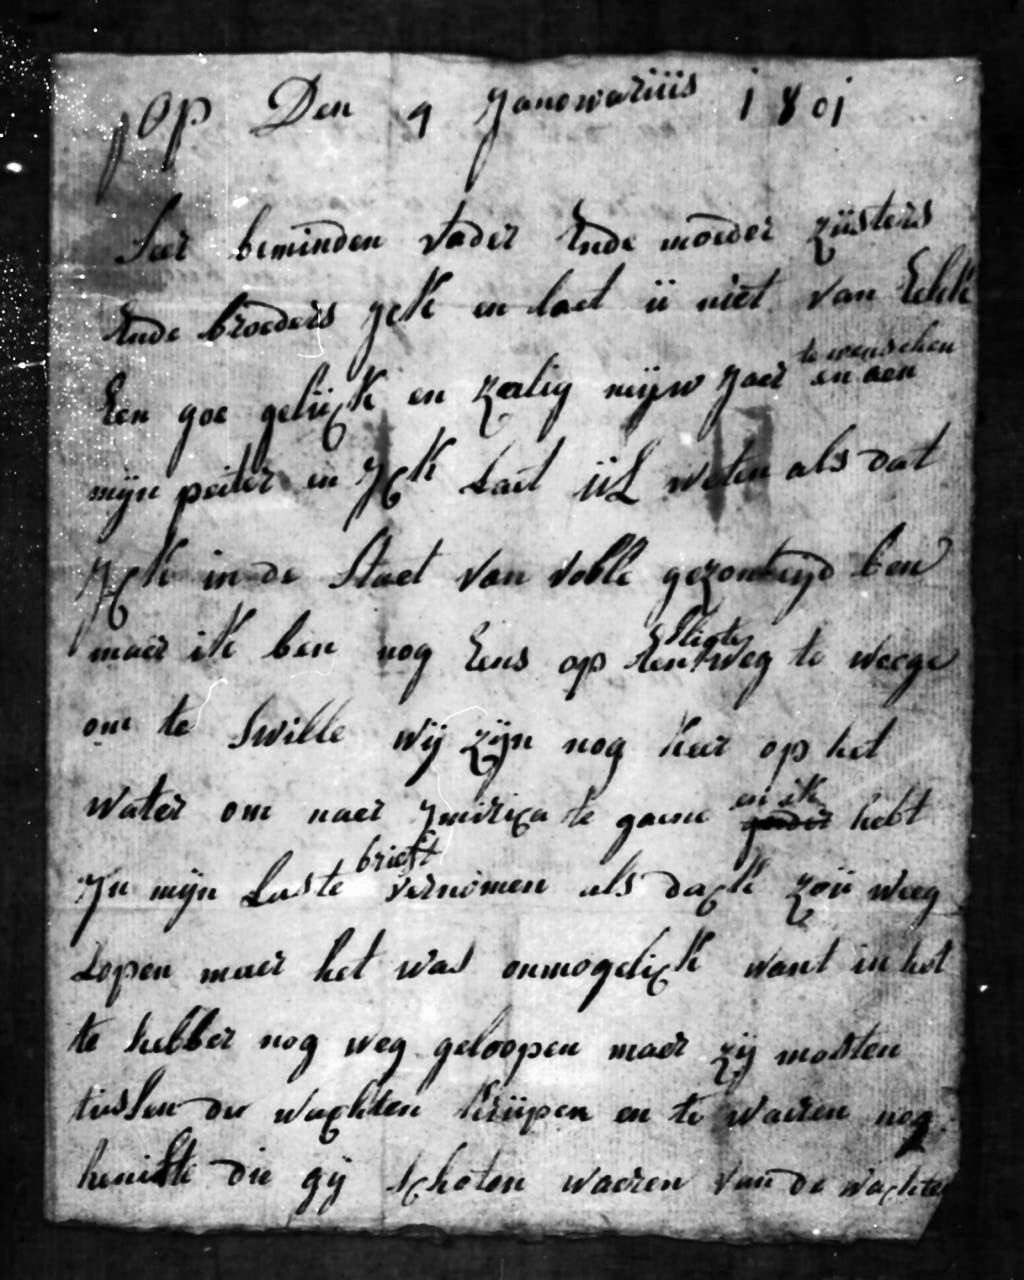 Op Den 9 Janowariiis 1801
Seer beminden vader Ende moeder züsters
Ende broeders yck en laet ü niet van
Een goe gelück en zaelig nijw Jaer te wenschen en aen
mijn peiter en Yck Laet üL weten als dat
Yck in de Staet van volle gezonteyd ben
maer ik ben nog Eens op Een Slegte weg te weege
om te Swille wij zijn nog keer op het
water om naer te gaene en ik hebt
Yn mijn Laste brieft vernomen als dack zoü weeg
Lopen maer het was onmogelick want in het
te hebber nog weg geloopen maer zij mosten
tussen de wachten krüpen en te waeren nog
die gij schoten waeren van de wachten